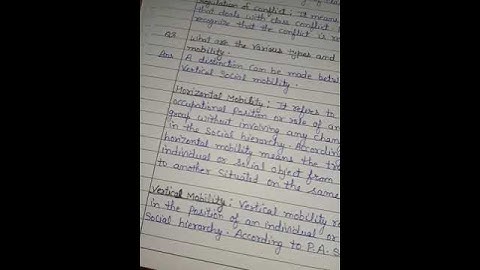 regulation of conflict: It means
that deals with class conflict
recognise that the conflict is
Q3 What are the various types and
mobility.
Ans A distinction can be made
Vertical Social mobility.
Horizontal Mobility: It refers to
occupational position or role of an
group without involving any
in the Social hierarchy. According
horizontal mobility means the
individual or social object from
to another situated on the same
Vertical Mobility: Vertical mobility
in the position of an individual or
Social hierarchy. According to P.A. S